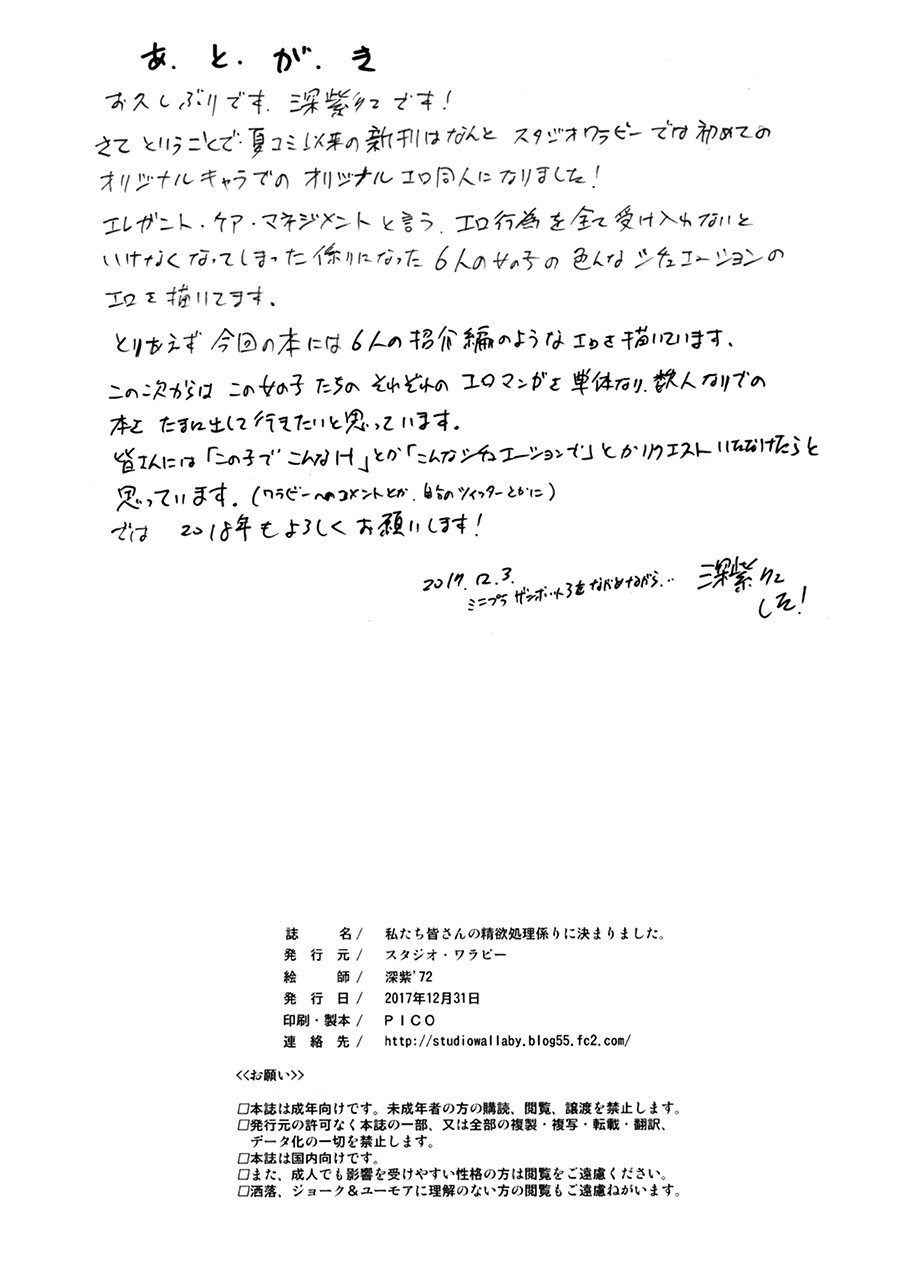 あ.と.が.き
お久しぶりです.深紫'72です!
さてということで.夏コミ以来の新刊はなんと スタジオワラビーでは初めての
オリジナルキャラでの オリジナルエロ同人になりました!
エレガント・ケア・マネジメントと言う.エロ行為を全て受け入れないと
いけなくなってしまった係りになった 6人の女の子の 色んなシチュエーションの
エロを描いてます.
とりあえず 今回の本には 6人の紹介編のようなエロを描いています.
この次からは この女の子たちの それぞれの エロマンガを単体なり.数人なりでの
本を たまに出して行きたいと思っています.
皆さんには「この子で こんなH」とか「こんなシチュエーションで」とかリクエストいただけたらと
思っています.(ワラビーへのコメントとか.自分のツイッターとかに)
では 2018年もよろしくお願いします!
2017.12.3.
ミニプラ ザンボット3をながめながら...
深紫'72
でした!
誌 名/ 私たち皆さんの精欲処理係りに決まりました。
発 行 元/ スタジオ・ワラビー
絵 師/ 深紫'72
発 行 日/ 2017年12月31日
印刷・製本/ PICO
連 絡 先/ http://studiowallaby.blog55.fc2.com/
<<お願い>>
□本誌は成年向けです。未成年者の方の購読、閲覧、譲渡を禁止します。
□発行元の許可なく本誌の一部、又は全部の複製・複写・転載・翻訳、
データ化の一切を禁止します。
□本誌は国内向けです。
□また、成人でも影響を受けやすい性格の方は閲覧をご遠慮ください。
□洒落、ジョーク＆ユーモアに理解のない方の閲覧もご遠慮ねがいます。